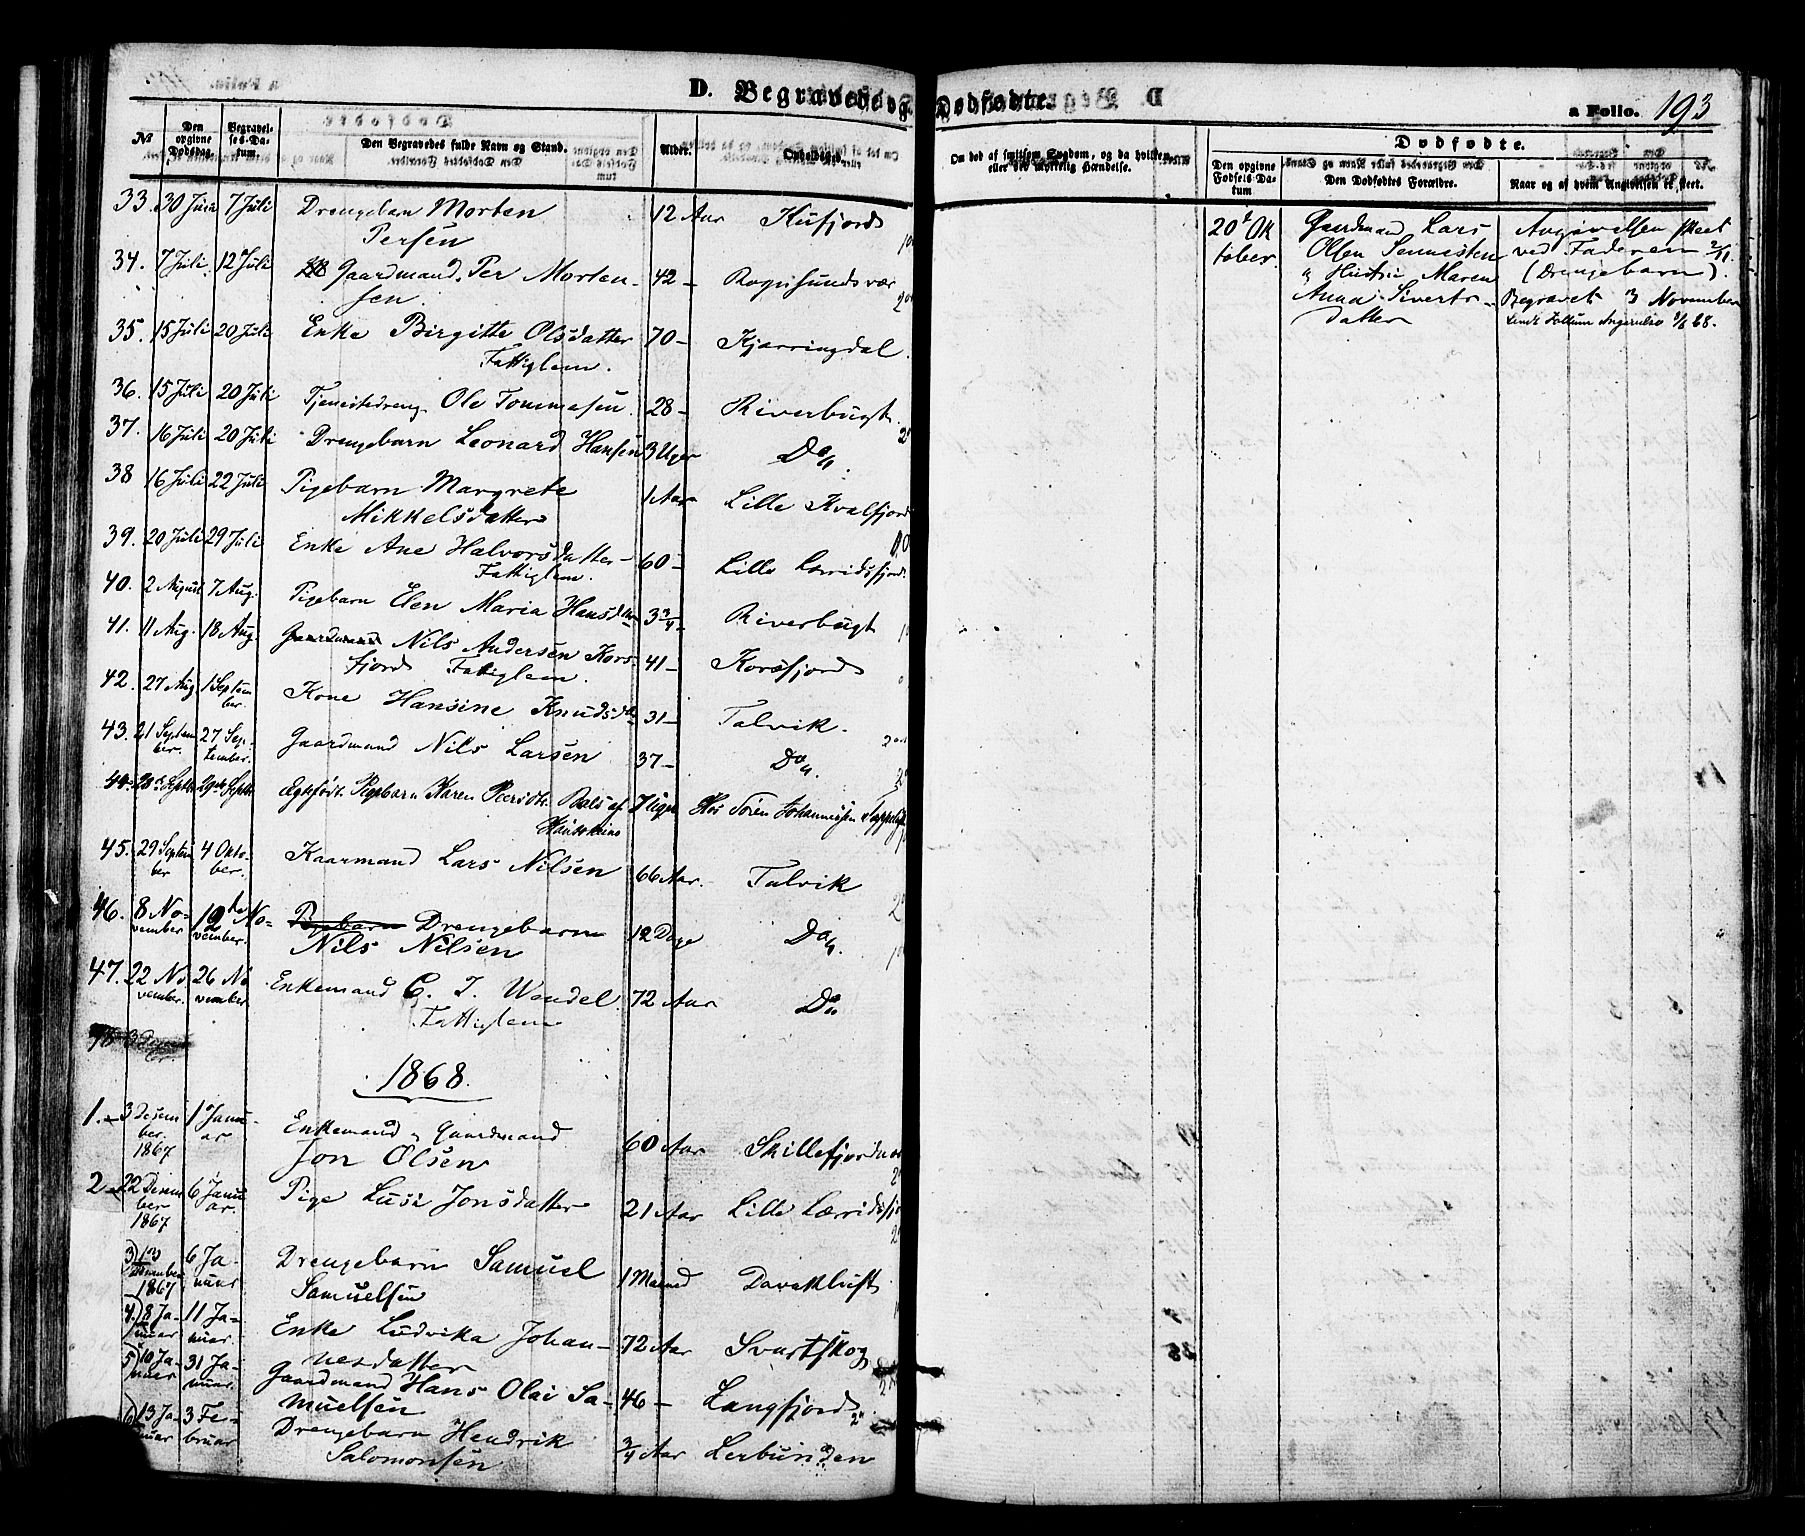 D. Begravede og Dødfødte.
a Folio. 193
No
Den opgivne Dødsdag.
Begravelses-Datum.
Den Begravedes fulde Navn og Stand.
Alder.
Opholdssted.
Om død af smitsom Sygdom, og da hvilken, eller ved ulykkelig Hændelse.
Dødfødte.
Den opgivne Fødsels-Datum
Den Dødfødtes Forældre.
Naar og af hvem Angivelsen er skeet.
33. 30 Juni 7 Juli Drengebarn Morten 12 Aar Kufjord
Persen
34. 7 Juli 12 Juli Gaardmand Per Morten- 42 - Rognsundsvær
sen
35. 15 Juli 20 Juli Enke Birgitte Olsdatter 70 - Kjærringdal
Fattiglem.
36. 15 Juli 20 Juli Tjenestedreng Ole Tommesen 28 - Riverbugt
37. 16 Juli 20 Juli Drengebarn Leonard Hansen 3 Uger Do
38 16 Juli 22 Juli Pigebarn Margrete 1 Aar Lille Kvalfjord
Mikkelsdatter
39. 20 Juli 29 Juli Enke Ane Halvorsdatter 60 - Lille Lerridsfjord
Fattiglem.
40. 2 August 7 Aug. Pigebarn Elen Maria Hansdtr 3 3/4 - Riverbugt
41. 11 Aug. 18 Aug. Gaardmand Nils Andersen Kors- 41 - Korsfjord
fjord Fattiglem.
42. 27 Aug 1 September. Kone Hansine Knudsdtr 31 - Talvik.
43. 21 September. 27 September. Gaardmand Nils Larsen 37 - Do
44 28de Septbr 29de Septbr Ægtefødt Pigebarn Karen Peersdtr Bals af 7 Uger Hos Søren Johannessen
Kautokeino
45. 29 September 4 Oktober. Kaarmand Lars Nilsen 66 Aar. Talvik
46. 8 November 19 November. Pigebarn Drengebarn 12 Dage Do
Nils Nilsen
47. 22 November. 26 November Enkemand C. J. Wendel 72 Aar Do
Fattiglem
48 3 Desember.
1868.
1. 3 Desember. 1867 1 Januar Enkemand og Gaardmand 60 Aar Skillefjordnes
Jon Olsen
2 22 Desember 1867 6 Januar. Pige Lusi Jonsdatter 21 Aar Lille Lerridsfj
3) 13 Desember 1867 6 Januar Drengebarn Samuel 1 Maaned Davakluft
Samuelsen
4.) 8 Januar 11 Januar. Enke Ludvika Johan- 72 Aar Svartskog
nesdatter
5) 10 Januar 31 Januar. Gaardmand Hans Olai Sa- 46 - Langfjord
muelsen
6) 13 Januar 3 Februar Drengebarn Hendrik 3/4 Aar Lerbunden
Salomonsen
20de Oktober. Gaardmand Lars
Olsen Sennesten
og Hustru Maren
Anna Siverts-
datter
Angivelsen skeet
ved Faderen 2/11.
(Drengebarn).
Begravet 3 November